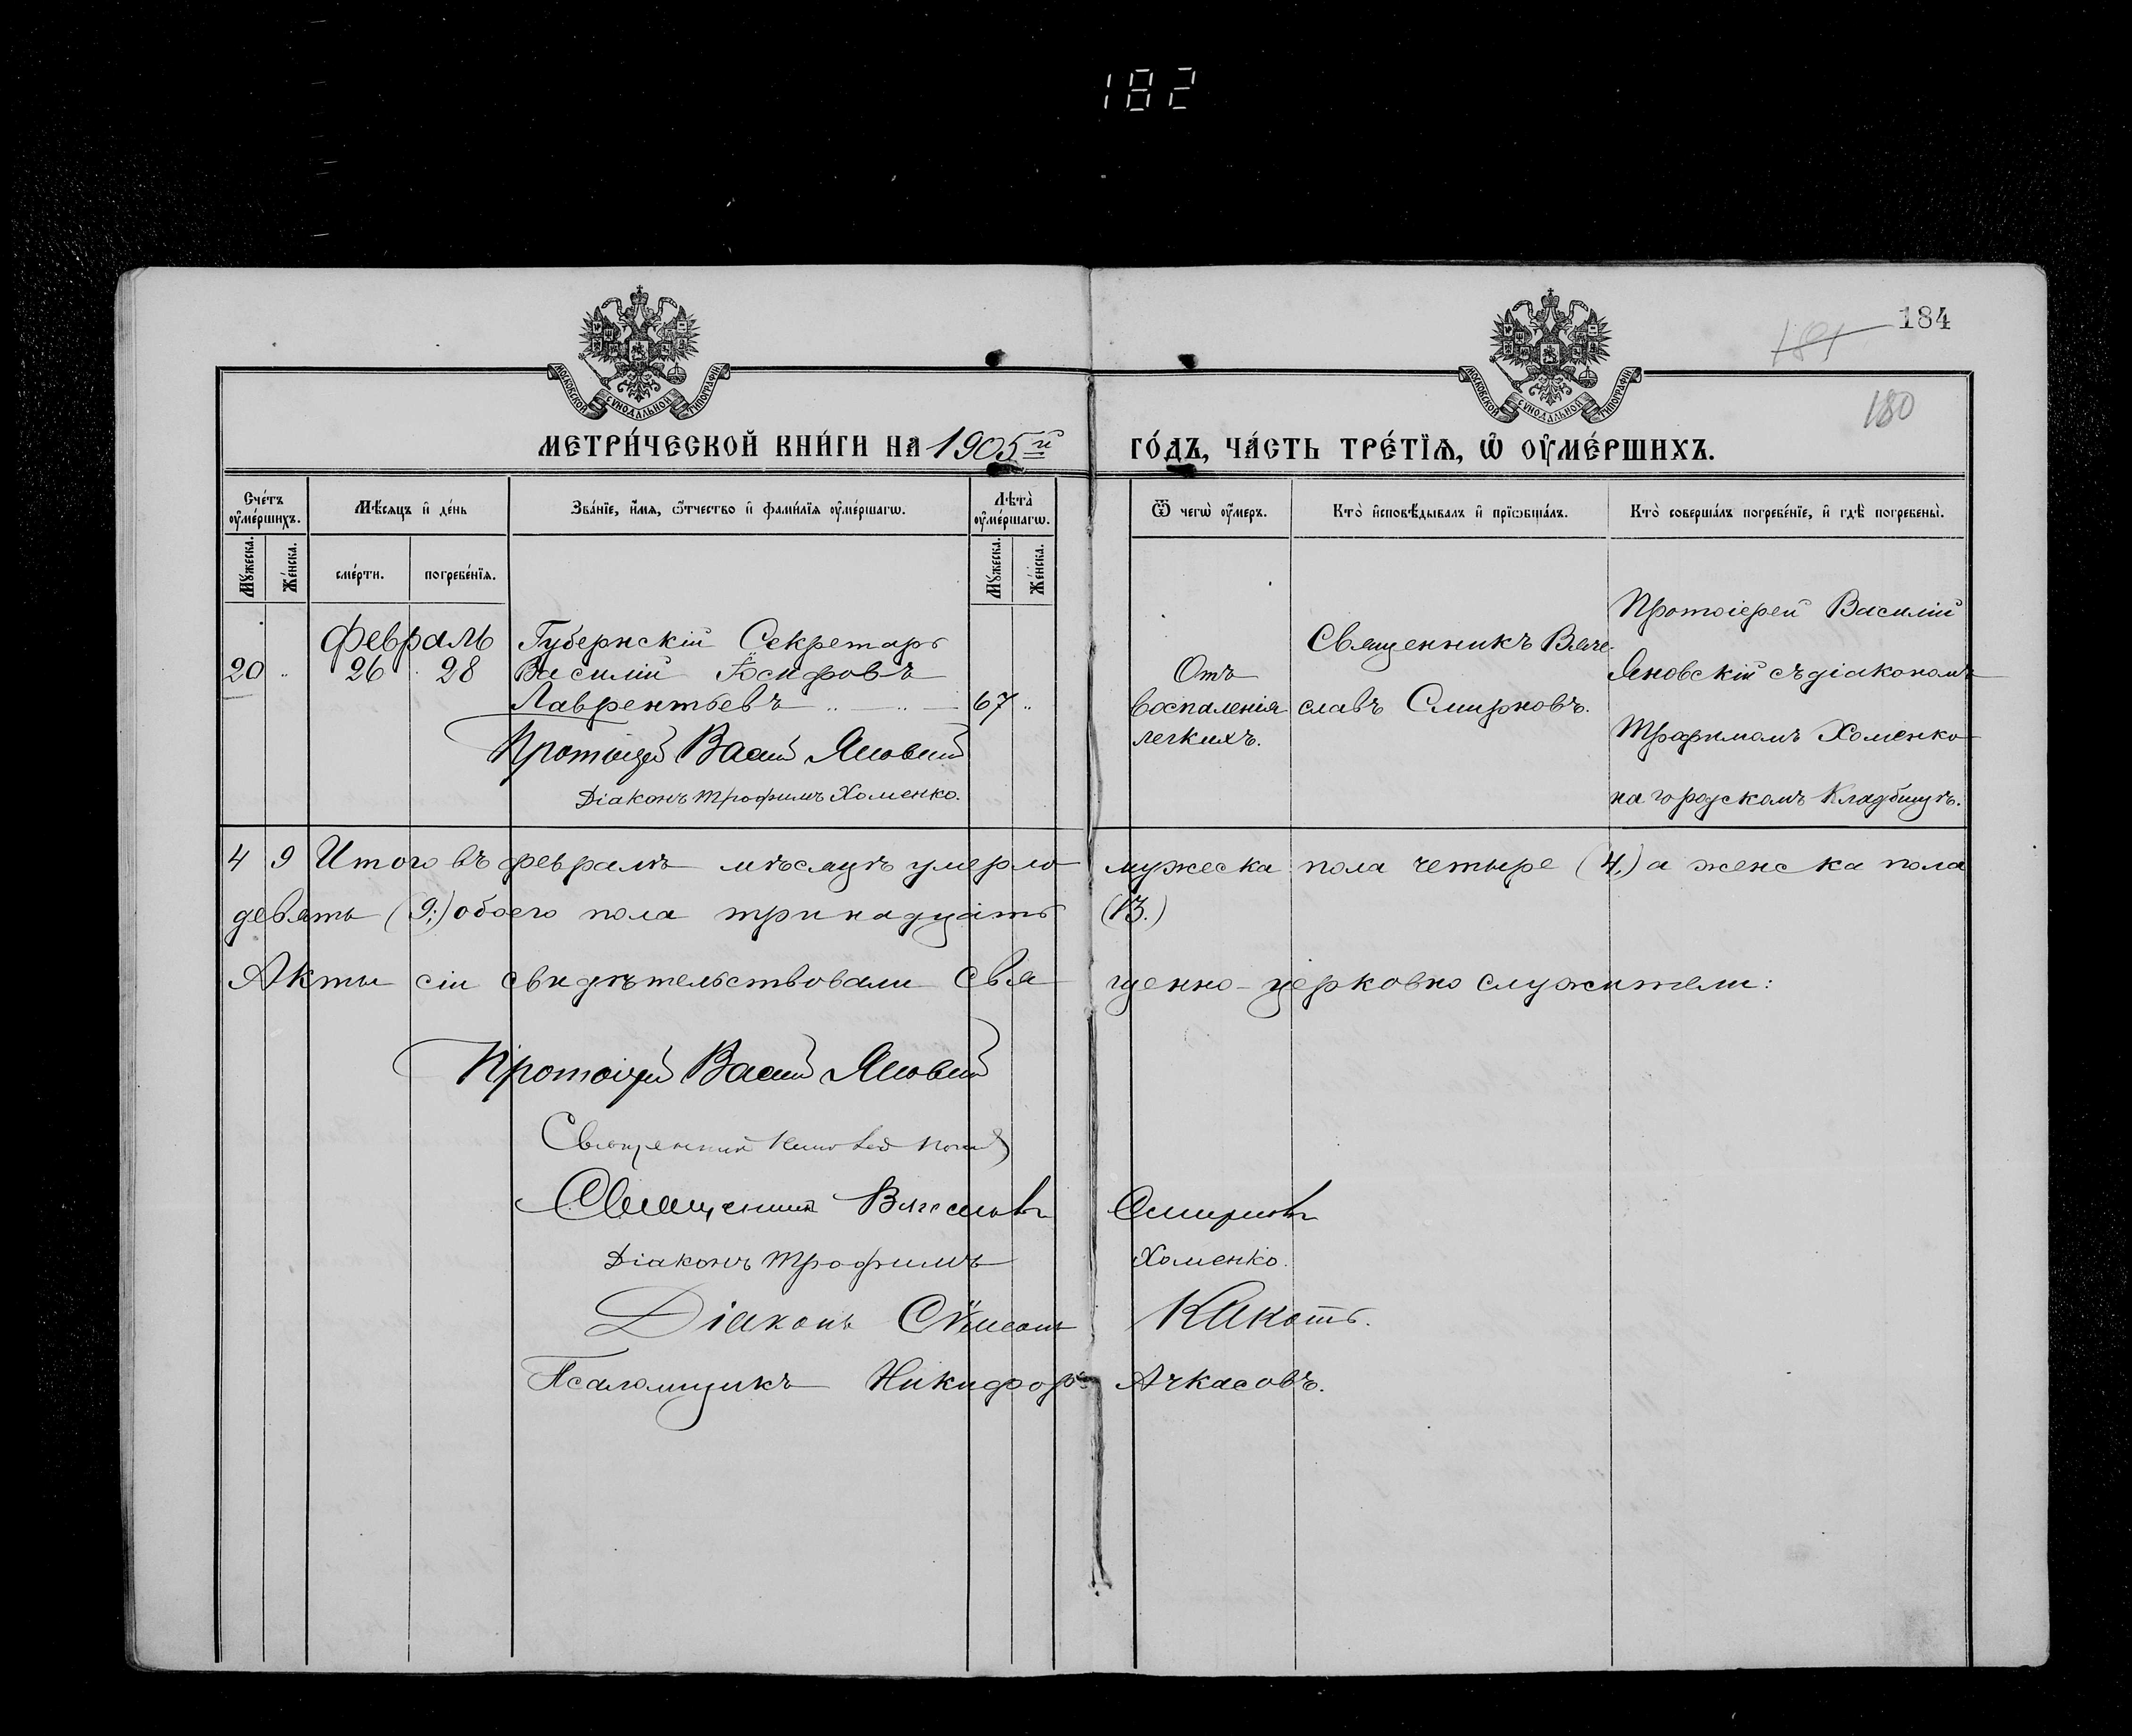 182
184
181
180
МОСКОВСКОЙ СѴНОДАЛЬНОЙ ТИПОГРАФІИ
МОСКОВСКОЙ СѴНОДАЛЬНОЙ ТИПОГРАФІИ
МЕТРИ́ЧЕСКОЙ КНИ́ГИ НА 1905й
ГО́ДЪ, ЧА́СТЬ ТРЕ́ТЇѦ, Ѡ҆ ОУ҆МЕ́РШИХЪ.
Сче́тъ оу҆ме́ршихъ.
Мѣ́сяцъ и҆ де́нь
Зва́нїе, и҆́мѧ, ѻ҆́тчество и҆ фами́лїѧ оу҆ме́ршагѡ.
Лѣ́та оу҆ме́ршагѡ.
Ѿ чегѡ̀ оу҆́меръ.
Кто̀ и҆сповѣ́дывалъ и҆ прїѡбща́лъ.
Кто̀ соверша́лъ погребе́нїе, и҆ гдѣ̀ погребены̀.
Мꙋ́жеска.
Же́нска.
сме́рти.
погребе́нїѧ.
Мꙋ́жеска.
Же́нска.
Февраль
20 „ 26 28
Губернскій Секретарь
Василій Іосифовъ
Лаврентьевъ 67 „
Протоіерей Василій Яновскій
Діаконъ Трофимъ Хоменко.
Отъ
воспаленія
легкихъ.
Священникъ Вяче-
славъ Смирновъ.
Протоіерей Василій
Яновскій съ діакономъ
Трофимомъ Хоменко
на городскомъ Кладбищѣ.
4 9 Итого въ февралѣ мѣсяцѣ умерло мужеска пола четыре (4.) а женска пола
девять (9:) обоего пола тринадцать (13.)
Акты сіи свидѣтельствовали свя щенно-церковно служители:
Протоіерей Василій Яновскій
Священникъ
Священникъ Вячеславъ Смирновъ
Діаконъ Трофимъ Хоменко.
Діаконъ Сѵмеонъ
Псаломщикъ Никифоръ Ачкасовъ.